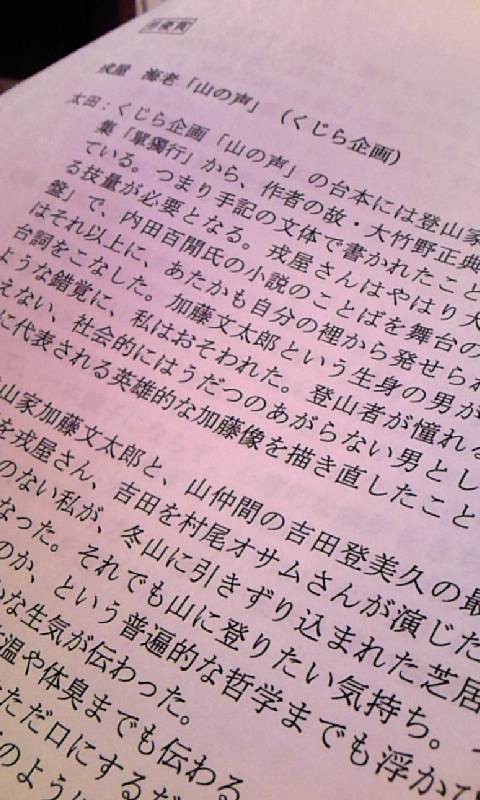 俳優賞
戎屋　海老「山の声」（くじら企画）
太田：くじら企画「山の声」の台本には登山家
集「單獨行」から、作者の故・大竹野正典
ている。つまり手記の文体で書かれたこと
る技量が必要となる。戎屋さんはやはり大
盤」で、内田百閒氏の小説のことばを舞台の
はそれ以上に、あたかも自分の裡から発せられ
台詞をこなした。加藤文太郎という生身の男が
ような錯覚に、私はおそわれた。登山者が憧れる
えない、社会的にはうだつのあがらない男とし
に代表される英雄的な加藤像を描き直したこと
山家加藤文太郎と、山仲間の吉田登美久の最
を戎屋さん、吉田を村尾オサムさんが演じた
のない私が、冬山に引きずり込まれた芝居
なった。それでも山に登りたい気持ち。
のか、という普遍的な哲学までも浮かび
な生気が伝わった。
温や体臭までも伝わる
ただ口にするだ
のように